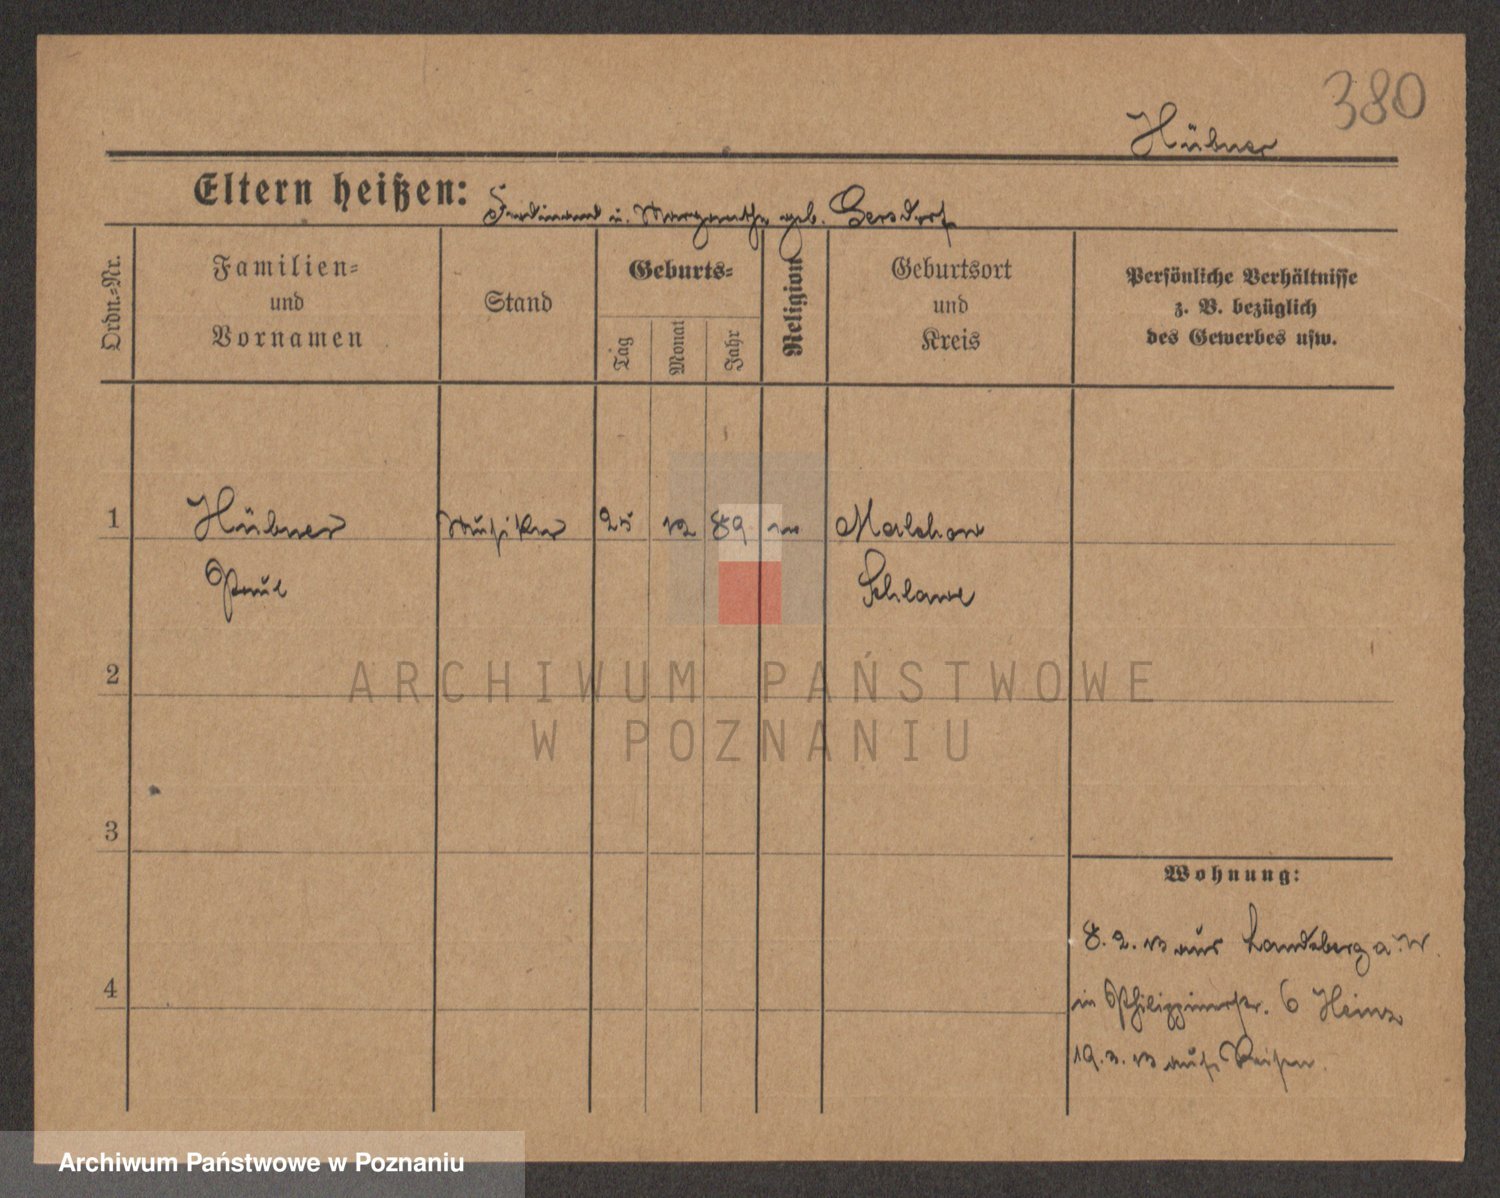 380
Hübner
Eltern heißen: Ferdinand u. Margarethe geb. Gersdorf
Ordn.=Nr.
Familien=
und
Vornamen
Stand
Geburts=
Tag
Monat
Jahr
Religion
Geburtsort
und
Kreis
Persönliche Verhältnisse
z. B. bezüglich
des Gewerbes usw.
1 Hübner Musiker 25 12 89 Malchow
Paul Schlawe
2
3
4
Wohnung:
8. 2. 13 aus Landsberg a. W.
in Philippinerstr. 6 Heinz
19. 3. 13 auf Reisen.
ARCHIWUM PAŃSTWOWE
W POZNANIU
Archiwum Państwowe w Poznaniu